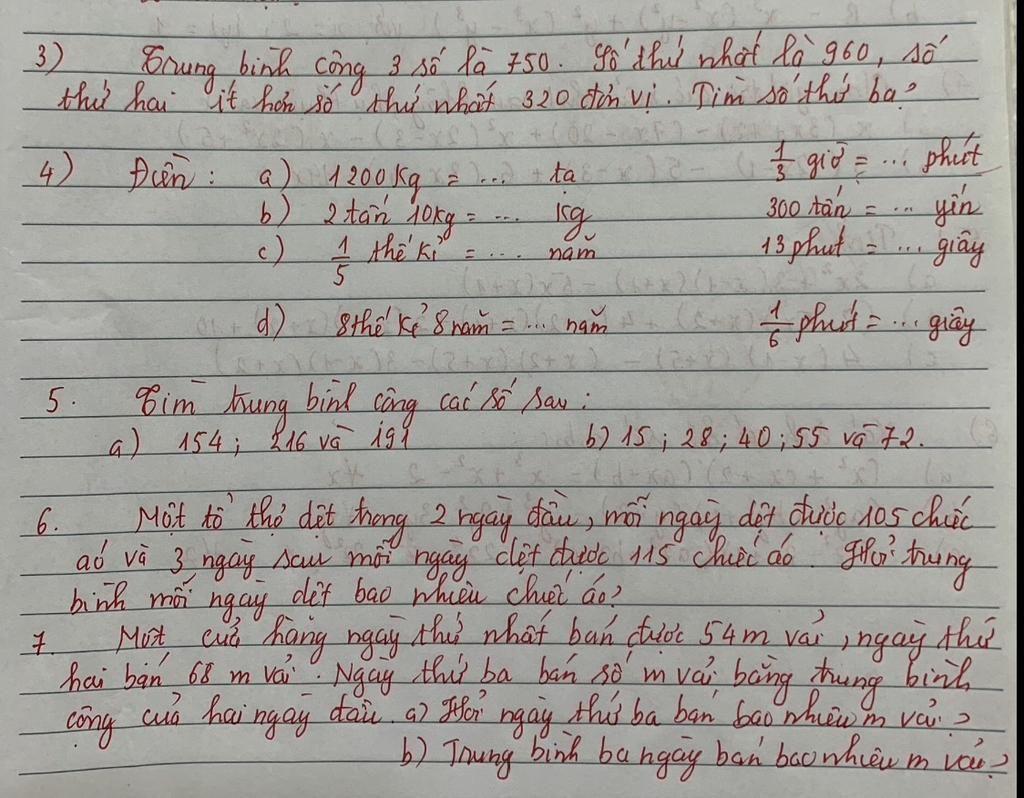 3) Trung bình cộng 3 số là 750. Số thứ nhất là 960, số
thứ hai ít hơn số thứ nhất 320 đơn vị. Tìm số thứ ba?
4) Điền: a) 1200kg = ... tạ 1/3 giờ = ... phút
b) 2 tấn 10kg = ... kg 300 tấn = ... yến
c) 1/5 thế kỉ = ... năm 13 phút = ... giây
d) 8 thế kỉ 8 năm = ... năm 1/6 phút = ... giây
5. Tìm trung bình cộng các số sau:
a) 154; 216 và 191 b) 15; 28; 40; 55 và 72.
6. Một tổ thợ dệt trong 2 ngày đầu, mỗi ngày dệt được 105 chiếc
áo và 3 ngày sau mỗi ngày dệt được 115 chiếc áo. Hỏi trung
bình mỗi ngày dệt bao nhiêu chiếc áo?
7 Một cửa hàng ngày thứ nhất bán được 54m vải, ngày thứ
hai bán 68 m vải. Ngày thứ ba bán số m vải bằng trung bình
cộng của hai ngày đầu. a) Hỏi ngày thứ ba bán bao nhiêu m vải?
b) Trung bình ba ngày bán bao nhiêu m vải?